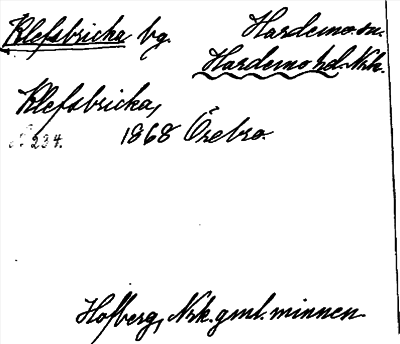 Klefsbricka bg. Hardemo sn.
Hardemo hd. Nrk.
Klefsbricka,
s. 234. 1868 Örebro.
Hofberg, Nrk. gml. minnen